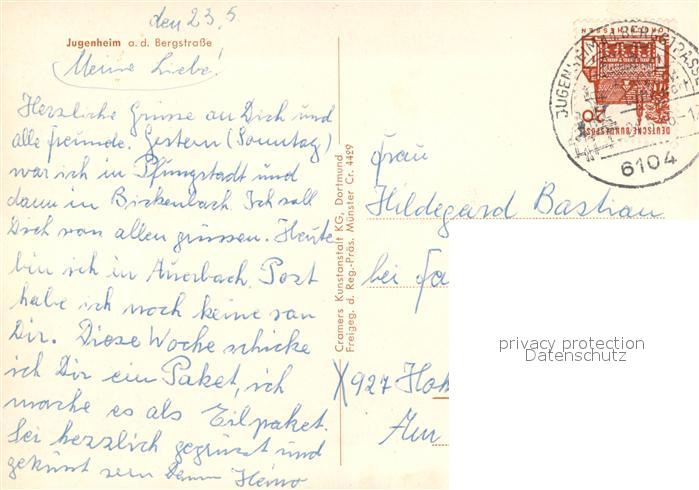 den 23.5.
Jugenheim a.d. Bergstraße
Meine Liebe!
Herzliche Grüsse an Dich und
alle Freunde. Gestern (Sonntag)
war ich in Pfungstadt und
dann in Bickenbach. Ich soll
Dich von allen grüssen. Heute
bin ich in Auerbach. Post
habe ich noch keine von
Dir. Diese Woche schicke
ich Dir ein Paket, ich
mache es als Eilpaket.
Sei herzlich gegrüsst und
geküsst von Heino
Cramers Kunstanstalt KG, Dortmund
Freigeg. d. Reg.-Präs. Münster Cr. 4429
LORSCH HESSEN
20
DEUTSCHE BUNDESPOST
6104
Frau
Hildegard Bastian
bei Fa
X 927
Am
privacy protection
Datenschutz